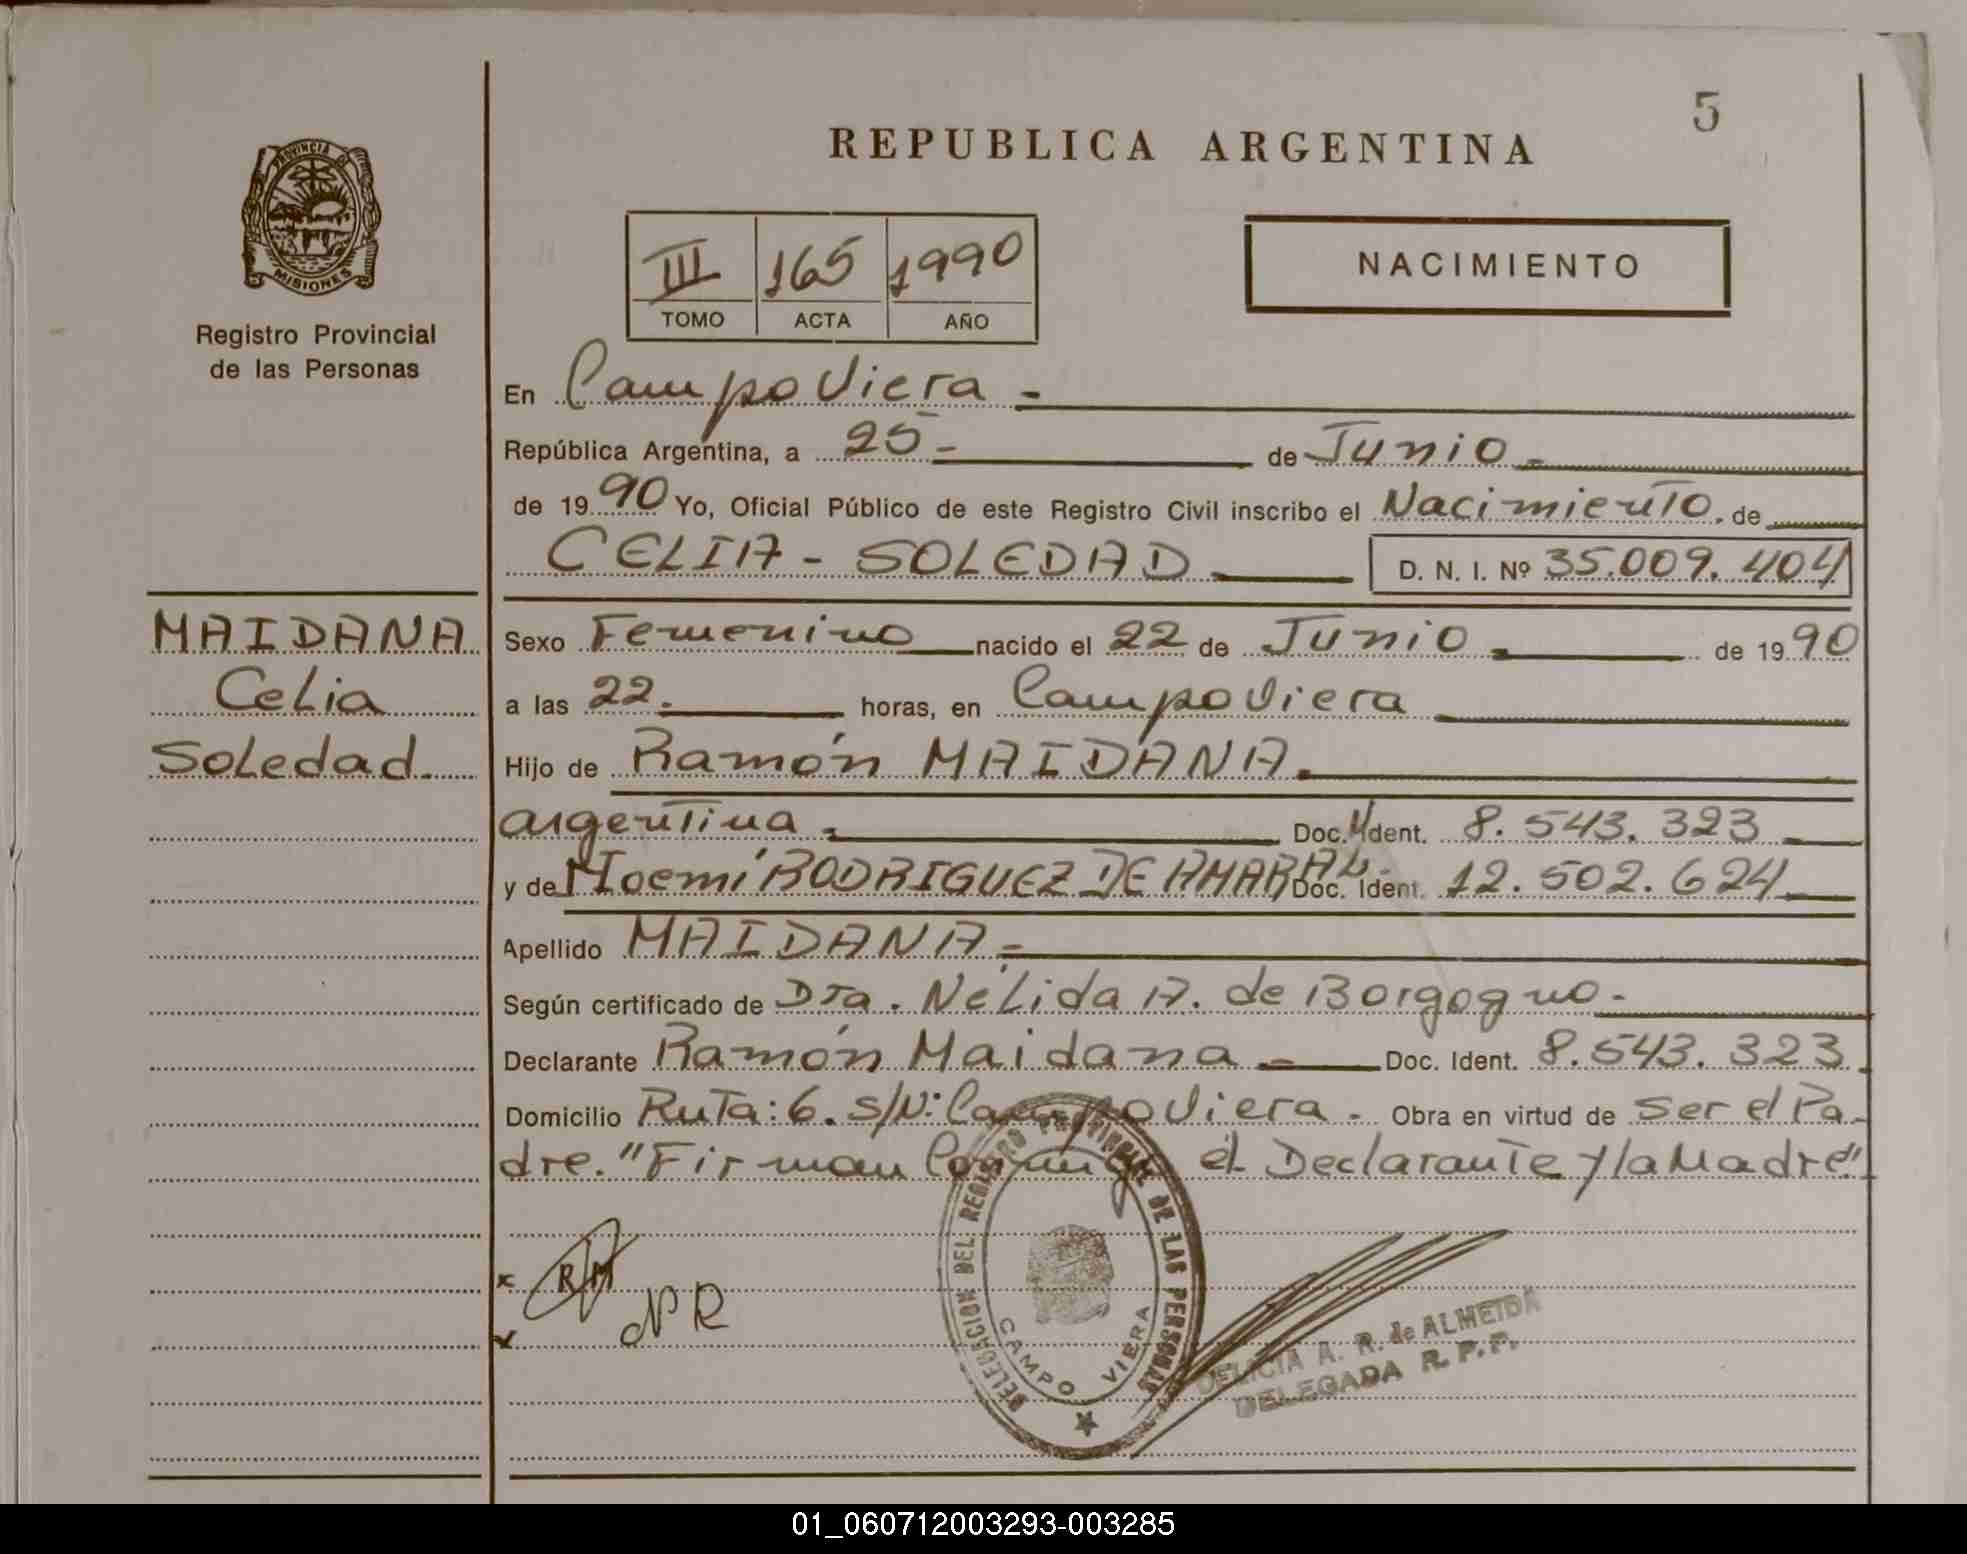 5
REPUBLICA ARGENTINA
PROVINCIA DE
MISIONES
Registro Provincial
de las Personas
III 165 1990
TOMO ACTA AÑO
NACIMIENTO
En Campo Viera -
República Argentina, a 25 - de Junio -
de 1990 Yo, Oficial Público de este Registro Civil inscribo el Nacimiento. de
CELIA - SOLEDAD D. N. I. Nº 35.009.404
MAIDANA
Celia
Soledad.
Sexo Femenino nacido el 22 de Junio - de 1990
a las 22. horas, en Campo Viera
Hijo de Ramón MAIDANA.
argentina - Doc. Ident. 8.543.323
y de Noemí RODRIGUEZ DE AMARAL Doc. Ident. 12.502.624
Apellido MAIDANA -
Según certificado de Dra. Nélida A. de Borgogno -
Declarante Ramón Maidana - Doc. Ident. 8.543.323
Domicilio Ruta: 6. s/N: Campo Viera - Obra en virtud de ser el Pa-
dre. "Firman el Declarante y la Madre"
x RM
NR
DELEGACION DEL REGISTRO PROVINCIAL DE LAS PERSONAS
CAMPO VIERA
DELICIA A. R. de ALMEIDA
DELEGADA R. P. P.
01_060712003293-003285